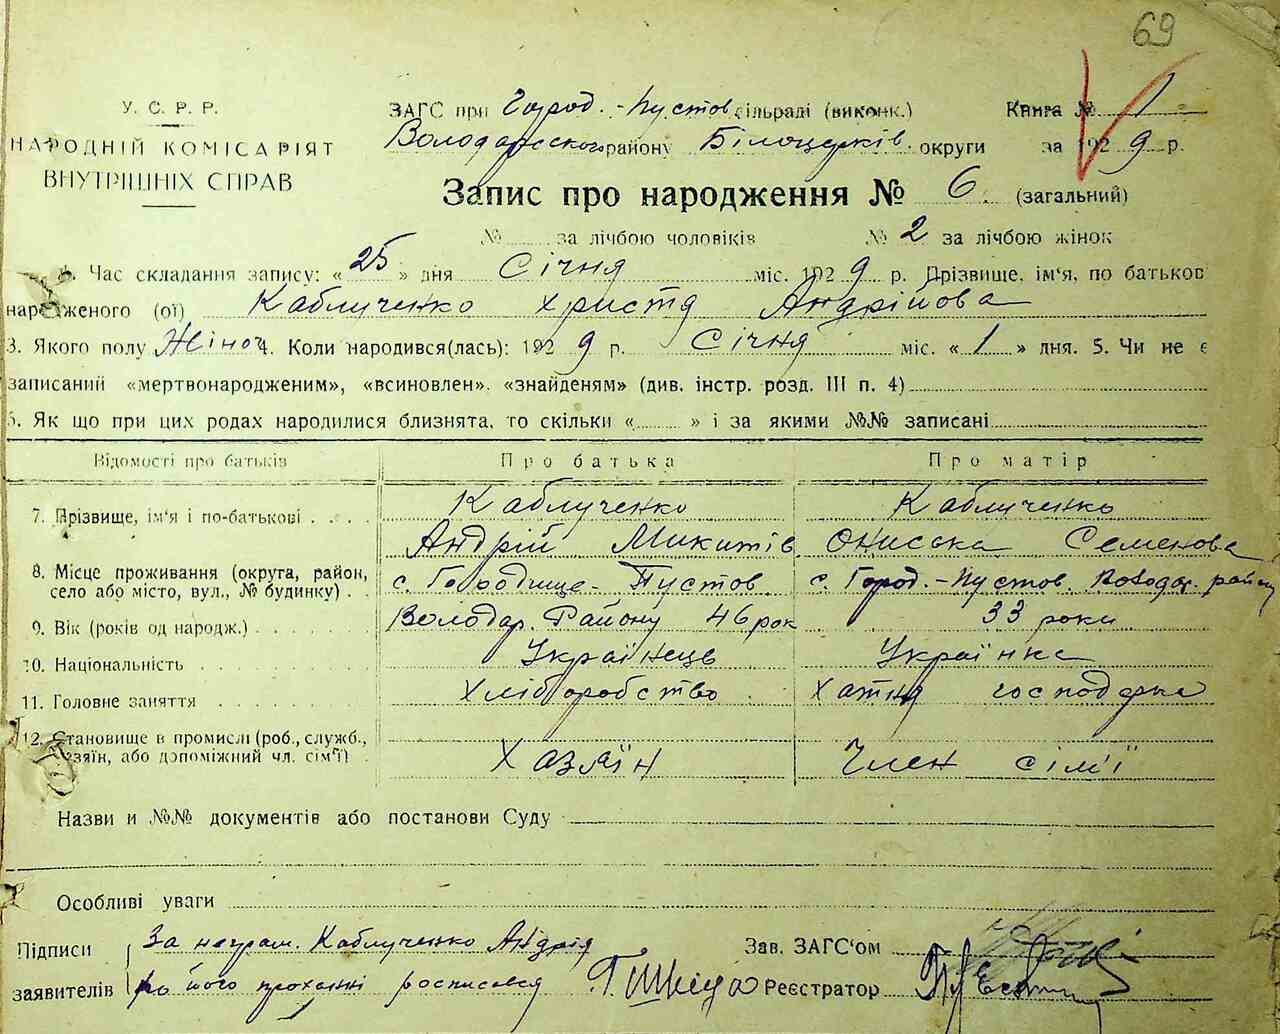 69
У. С. Р. Р.
НАРОДНІЙ КОМІСАРІЯТ
ВНУТРІШНІХ СПРАВ
ЗАГС при Город.-Пустов. сільраді (виконк.) Книга № 1
Володарского району Білоцерків. округи за 1929 р.
Запис про народження № 6 (загальний)
№ за лічбою чоловіків № 2 за лічбою жінок
Час складання запису: « 25 » дня Січня міс. 1929 р. Прізвище, ім'я, по батьков
народженого (ої) Каблученко Христя Андрійова
3. Якого полу Жіноч 4. Коли народився(лась): 1929 р. Січня міс. « 1 » дня. 5. Чи не є
записаний «мертвонародженим», «всиновлен», «знайденям» (див. інстр. розд. III п. 4)
6. Як що при цих родах народилися близнята, то скільки « » і за якими №№ записані
Відомості про батьків Про батька Про матір
7. Прізвище, ім'я і по-батькові Каблученко Каблученко
Андрій Микитів Ониська Семенова
8. Місце проживання (округа, район, село або місто, вул., № будинку) с. Городище-Пустов. с. Город.-Пустов. Володар. район
9. Вік (років од народж.) Володар. Району 46 рок 33 роки
10. Національність Українець Українка
11. Головне заняття Хліборобство Хатня господарка
12. Становище в промислі (роб., служб., хазяїн, або допоміжний чл. сім'ї) Хазяїн Член сім'ї
Назви и №№ документів або постанови Суду
Особливі уваги
Підписи За неграм. Каблученко Андрія Зав. ЗАГС'ом
заявителів по його проханні росписався Реєстратор